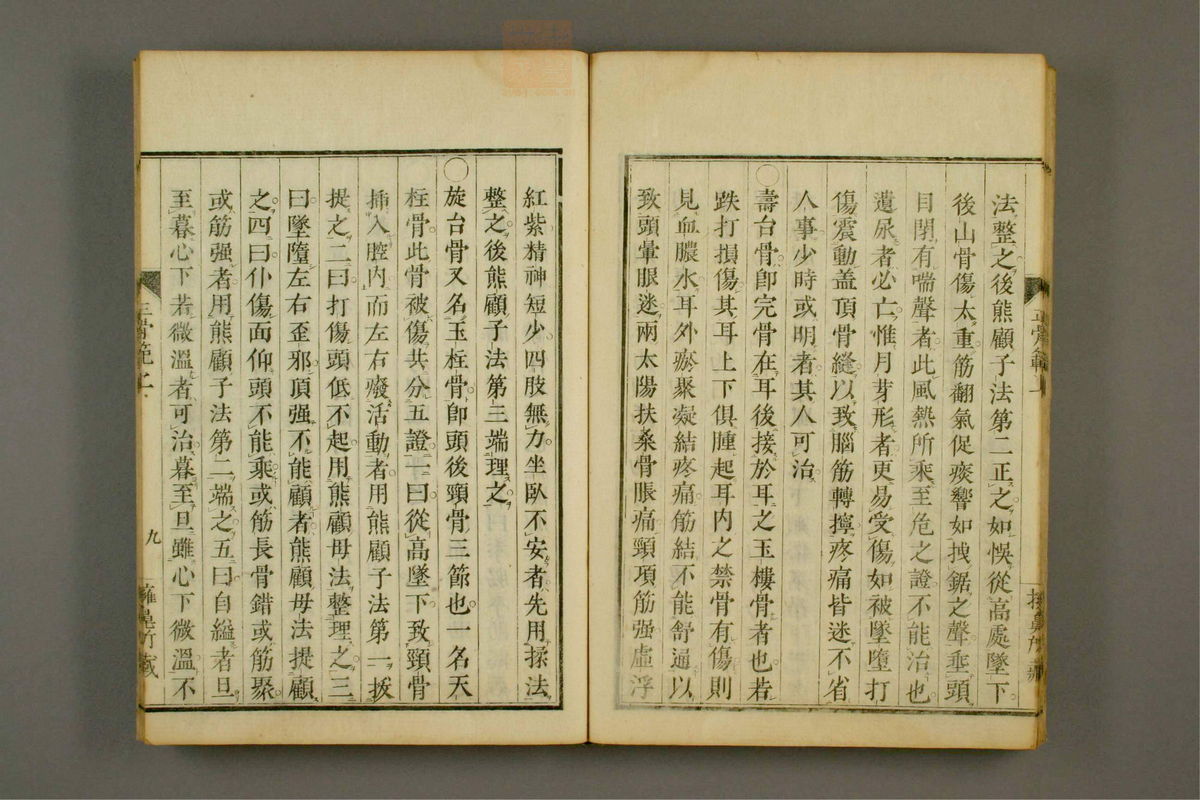 法整之後熊顧子法第二正之如悞從高處墜下
後山骨傷太重筋翻氣促痰響如拽鋸之聲垂頭
目閉有喘聲者此風熱所乘至危之證不能治也
遺尿者必亡惟月芽形者更易受傷如被墜墮打
傷震動蓋頂骨縫以致腦筋轉擰疼痛皆迷不省
人事少時或明者其人可治
〇壽台骨卽完骨在耳後接於耳之玉樓骨者也若
跌打損傷其耳上下俱腫起耳內之禁骨有傷則
見血膿水耳外瘀聚凝結疼痛筋結不能舒通以
致頭暈眼迷兩太陽扶桑骨脹痛頸項筋强虛浮
紅紫精神短少四肢無力坐臥不安者先用揉法
整之後熊顧子法第三端理之
〇旋台骨又名玉柱骨卽頭後頸骨三節也一名天
柱骨此骨被傷共分五證一曰從高墜下致頸骨
插入腔內而左右癈活動者用熊顧子法第一拔
提之二曰打傷頭低不起用熊顧母法整理之三
曰墜墮左右歪邪頂强不能顧者熊顧母法提顧
之四曰仆傷面仰頭不能乘或筋長骨錯或筋聚
或筋强者用熊顧子法第二端之五曰自縊者旦
至暮心下若微溫者可治暮至旦雖心下微溫不
正骨範上
九